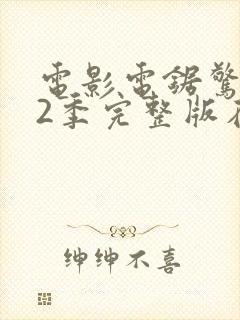 電影電鋸驚
2季完整版在
紳紳不喜